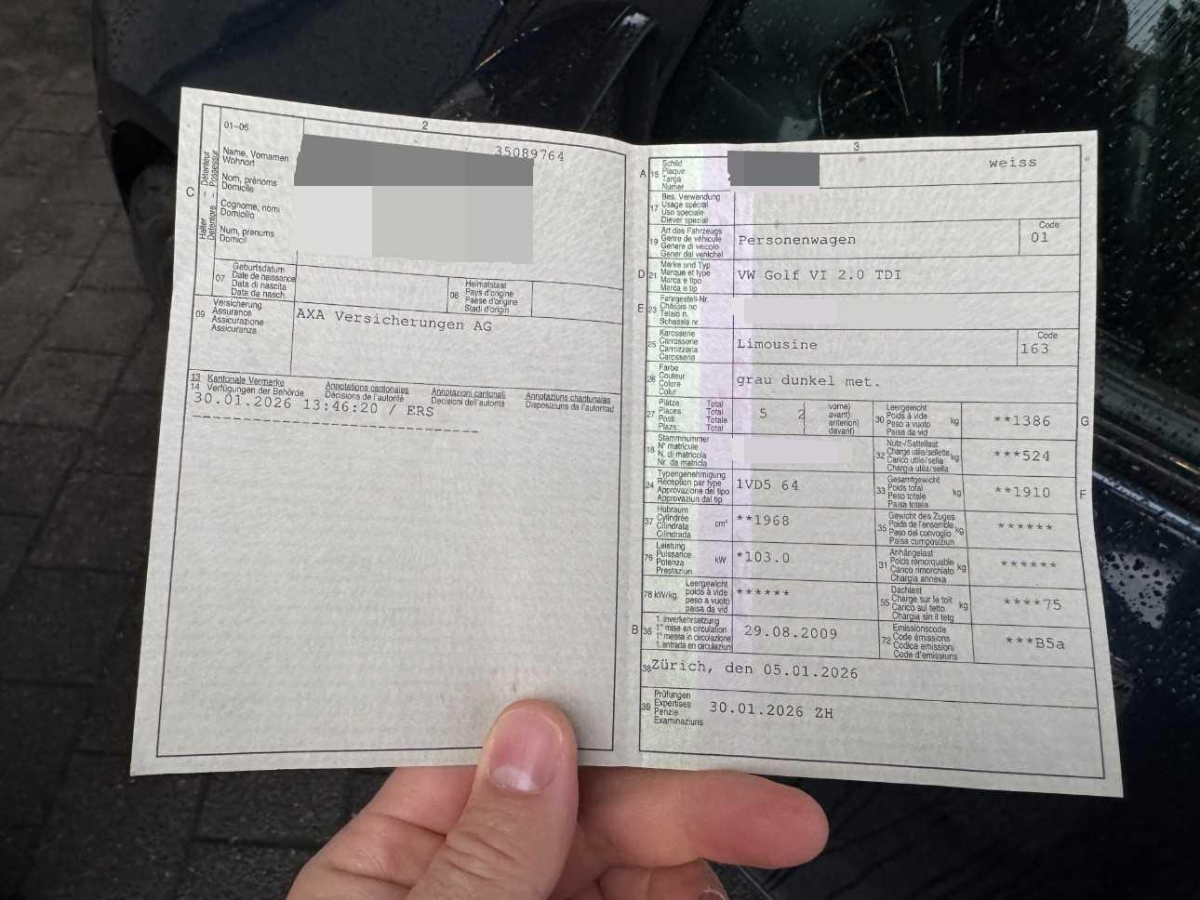 2
01-06
35089764
C
Halter – Détenteur
Detentore – Possessur
Name, Vornamen
Wohnort
Nom, prénoms
Domicile
Cognome, nomi
Domicilio
Num, prenums
Domicil
07
Geburtsdatum
Date de naissance
Data di nascita
Data da nasch.
08
Heimatstaat
Pays d'origine
Paese d'origine
Stadi d'origin
09
Versicherung
Assurance
Assicurazione
Assicuranza
AXA Versicherungen AG
13 Kantonale Vermerke
Annotations cantonales
Annotazioni cantonali
Annotaziuns chantunalas
14 Verfügungen der Behörde
Décisions de l'autorité
Decisioni dell'autorità
Disposiziuns da l'autoritad
30.01.2026 13:46:20 / ERS
3
A
15
Schild
Plaque
Targa
Numer
weiss
17
Bes. Verwendung
Usage spécial
Uso speciale
Diever spezial
19
Art des Fahrzeugs
Genre de véhicule
Genere di veicolo
Gener dal vehichel
Personenwagen
Code
01
D
21
Marke und Typ
Marque et type
Marca e tipo
Marca e tip
VW Golf VI 2.0 TDI
E
23
Fahrgestell-Nr.
Châssis no
Telaio n.
Schassis nr.
25
Karosserie
Carrosserie
Carrozzeria
Carossaria
Limousine
Code
163
26
Farbe
Couleur
Colore
Colur
grau dunkel met.
27
Plätze: Total
Places: Total
Posti: Totale
Plazs: Total
5 2
vorne)
avant)
anteriori)
davant)
30
Leergewicht
Poids à vide
Peso a vuoto
Paisa da vid
kg
**1386
G
18
Stammnummer
N° matricule
N. di matricola
Nr. da matricla
32
Nutz-/Sattellast
Charge utile/sellette
Carico utile/sella
Chargia utila/sella
kg
***524
24
Typengenehmigung
Réception par type
Approvazione del tipo
Approvaziun dal tip
1VD5 64
33
Gesamtgewicht
Poids total
Peso totale
Paisa totala
kg
**1910
F
37
Hubraum
Cylindrée
Cilindrata
Cilindrada
cm³
**1968
35
Gewicht des Zuges
Poids de l'ensemble
Peso del convoglio
Paisa cumposiziun
kg
******
76
Leistung
Puissance
Potenza
Prestaziun
kW
*103.0
31
Anhängelast
Poids remorquable
Carico rimorchiato
Chargia annexa
kg
******
78 kW/kg
Leergewicht
poids à vide
peso a vuoto
paisa da vid
******
55
Dachlast
Charge sur le toit
Carico sul tetto
Chargia sin il tetg
kg
****75
B
36
1. Inverkehrsetzung
1re mise en circulation
1a messa in circolazione
1. entrada en circulaziun
29.08.2009
72
Emissionscode
Code émissions
Codice emissioni
Code d'emissiuns
***B5a
38
Zürich, den 05.01.2026
39
Prüfungen
Expertises
Perizie
Examinaziuns
30.01.2026 ZH